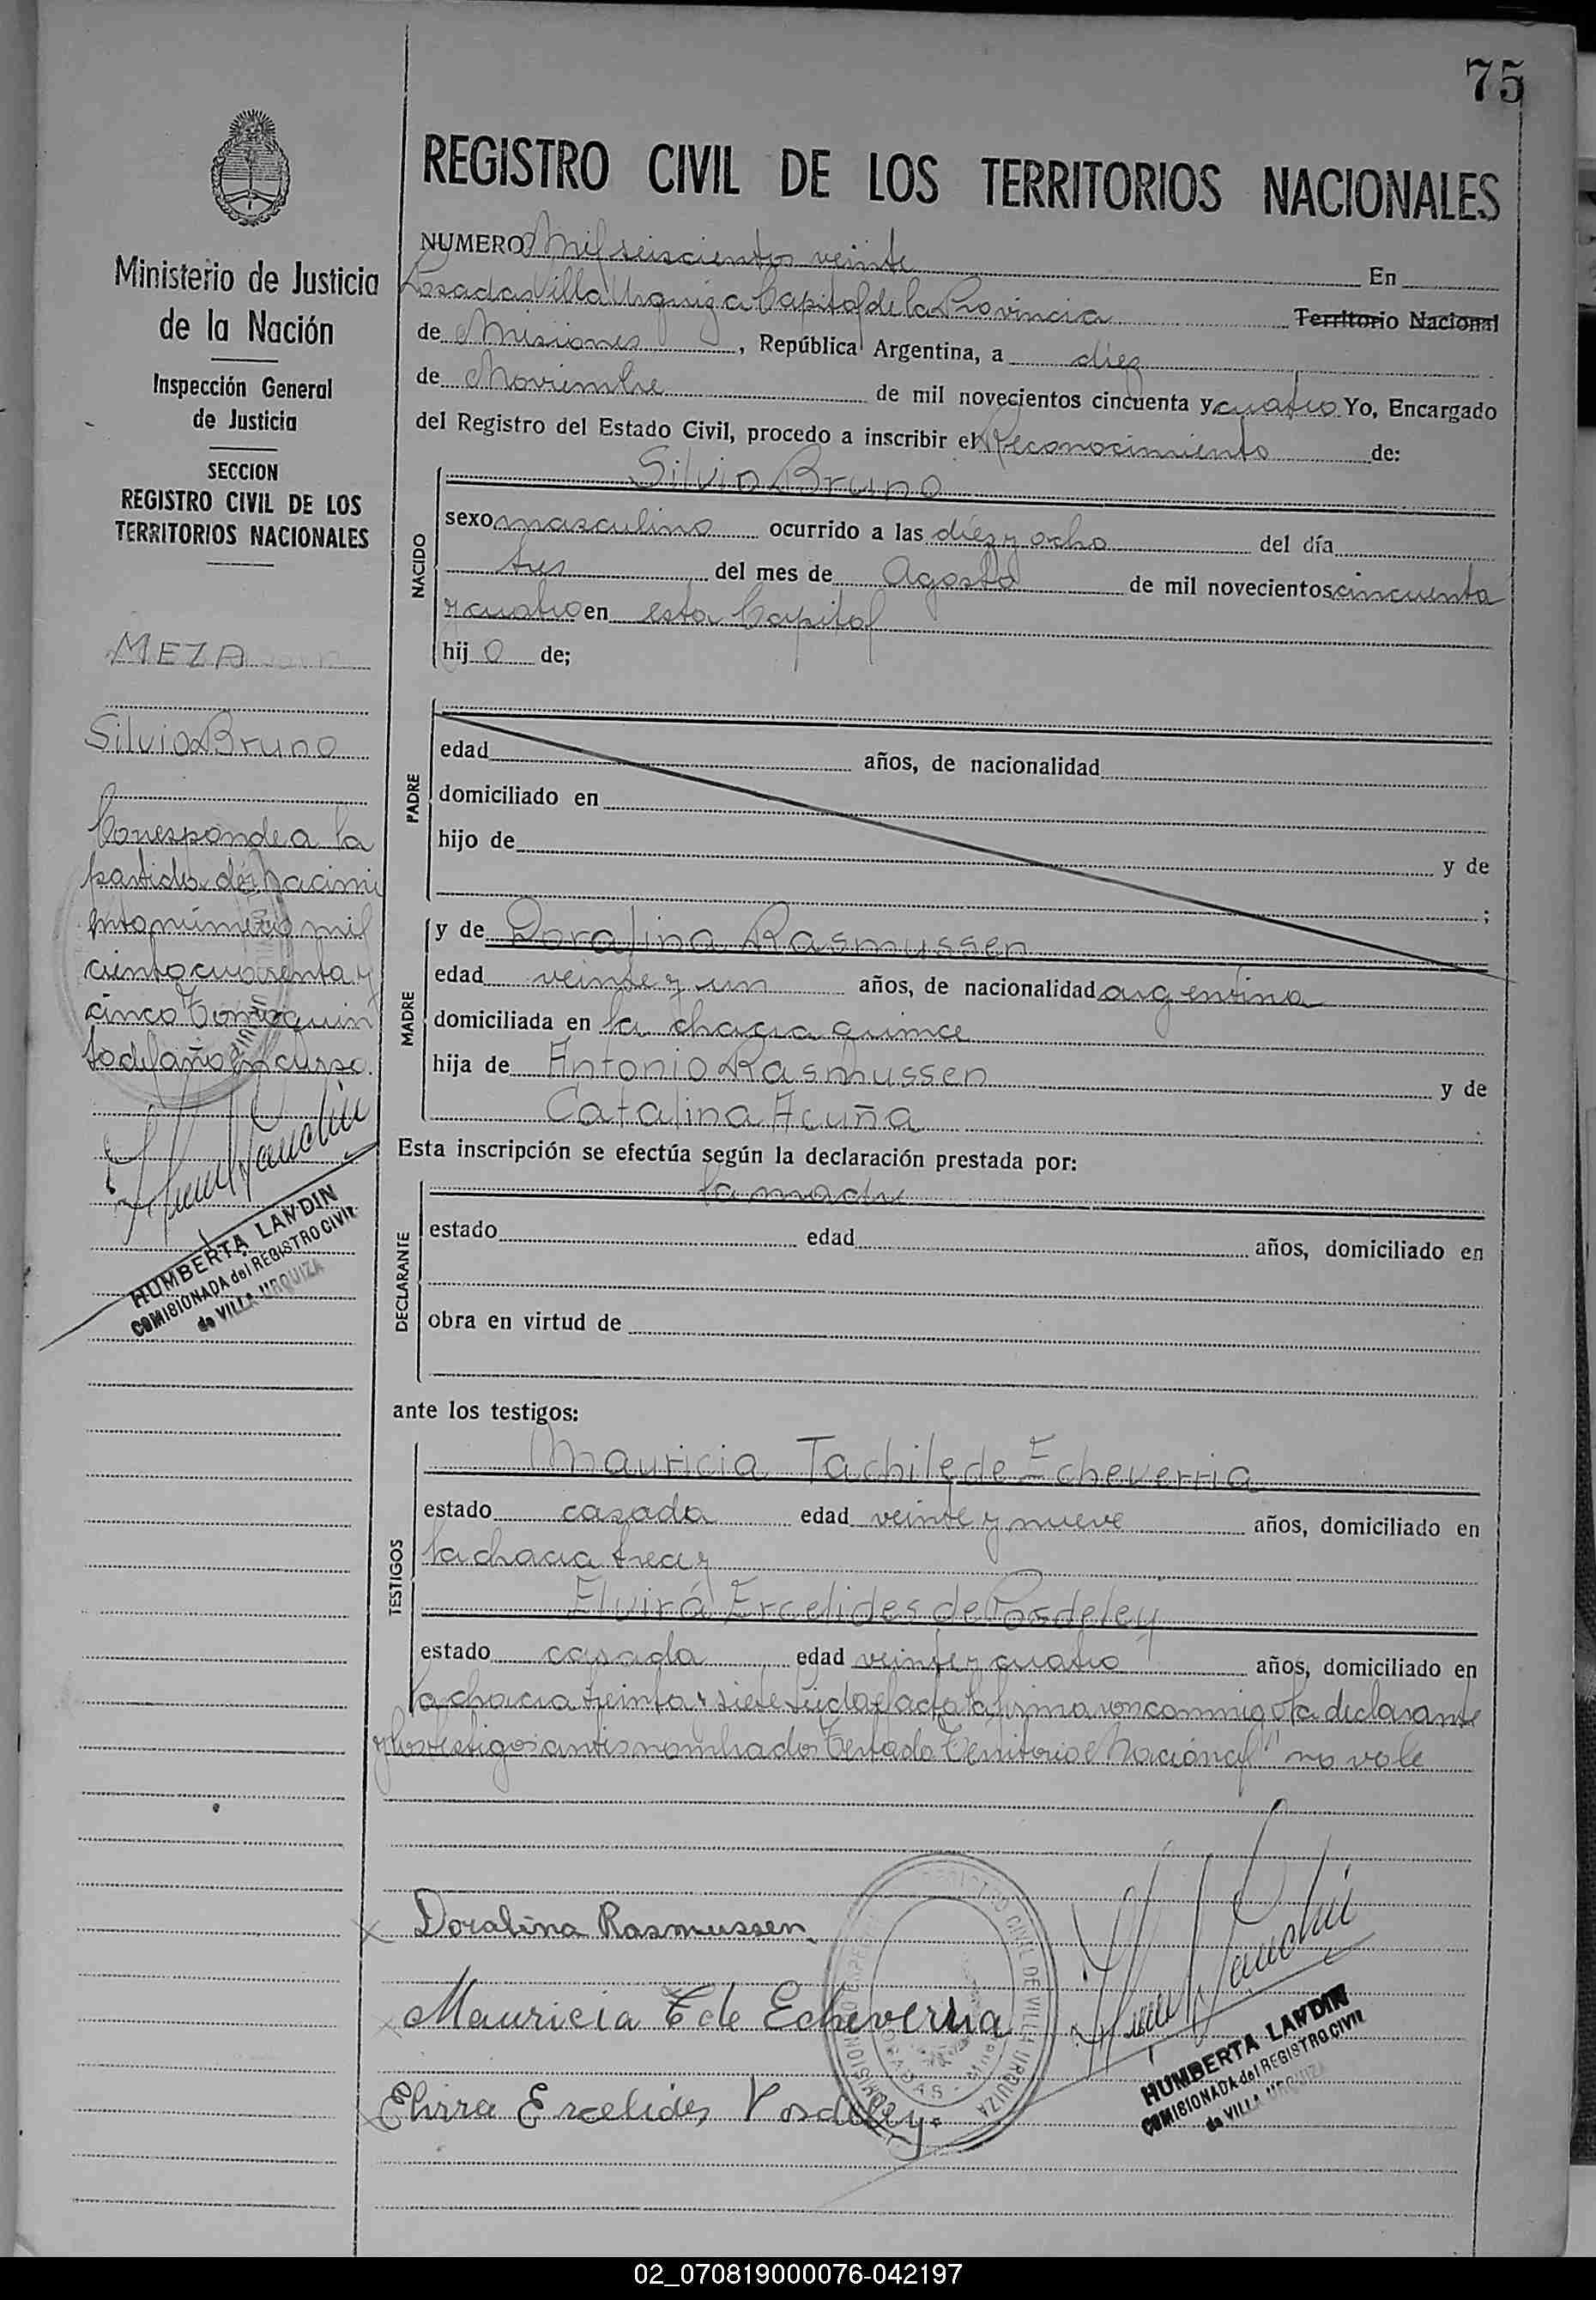 75
REGISTRO CIVIL DE LOS TERRITORIOS NACIONALES
Ministerio de Justicia
de la Nación
Inspección General
de Justicia
SECCION
REGISTRO CIVIL DE LOS
TERRITORIOS NACIONALES
MEZA
Silvio Bruno
Corresponde a la
partida de nacimi
ento número mil
ciento cuarenta y
cinco Tomo quin
to del año en curso.
HUMBERTA LANDIN
COMISIONADA del REGISTRO CIVIL
de VILLA URQUIZA
NUMERO Mil seiscientos veinte En
Posadas Villa Urquiza Capital de la Provincia Territorio Nacional
de Misiones, República Argentina, a diez
de Noviembre de mil novecientos cincuenta y cuatro Yo, Encargado
del Registro del Estado Civil, procedo a inscribir el Reconocimiento de:
NACIDO
Silvio Bruno
sexo masculino ocurrido a las diez y ocho del día
tres del mes de Agosto de mil novecientos cincuenta
y cuatro en esta Capital
hijo de;
PADRE
edad años, de nacionalidad
domiciliado en
hijo de y de
;
MADRE
y de Doralina Rasmussen
edad veinte y un años, de nacionalidad argentina
domiciliada en la chacra quince
hija de Antonio Rasmussen y de
Catalina Acuña
Esta inscripción se efectúa según la declaración prestada por:
DECLARANTE
la madre
estado edad años, domiciliado en
obra en virtud de
ante los testigos:
TESTIGOS
Mauricia Tachile de Echeverria
estado casada edad veinte y nueve años, domiciliado en
la chacra
Elvira Ercelides de Posdeley
estado casada edad veinte y cuatro años, domiciliado en
la chacra treinta y siete Leida el acta la firma con conmigo la declarante
y los testigos antes nombrados Testado "Territorio Nacional" no vale
Doralina Rasmussen
Mauricia T de Echeverria
Elvira Ercelides Posdeley
REGISTRO CIVIL DE VILLA URQUIZA
POSADAS
HUMBERTA LANDIN
COMISIONADA del REGISTRO CIVIL
de VILLA URQUIZA
02_070819000076-042197